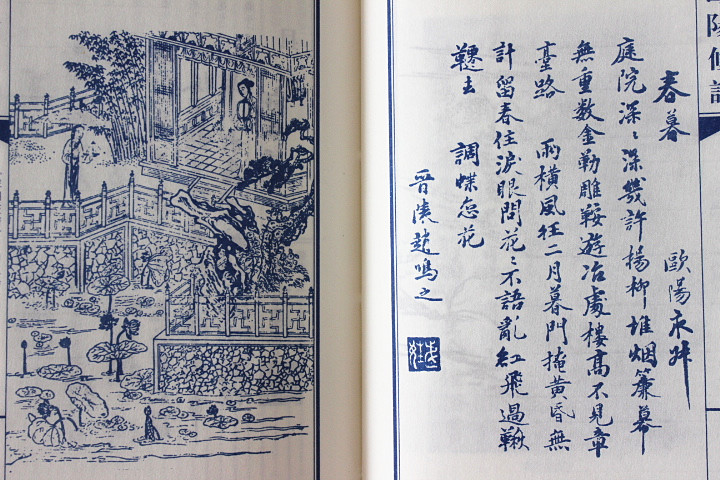 陽修詞
春暮
歐陽永叔
庭院深〻深幾許楊柳堆烟簾幕
無重数金勒雕鞍遊冶處樓高不見章
臺路　雨橫風狂二月暮門掩黄昏無
計留春住淚眼問花〻不語亂紅飛過鞦
韆去　調蝶恋花
晋陵趙鳴之